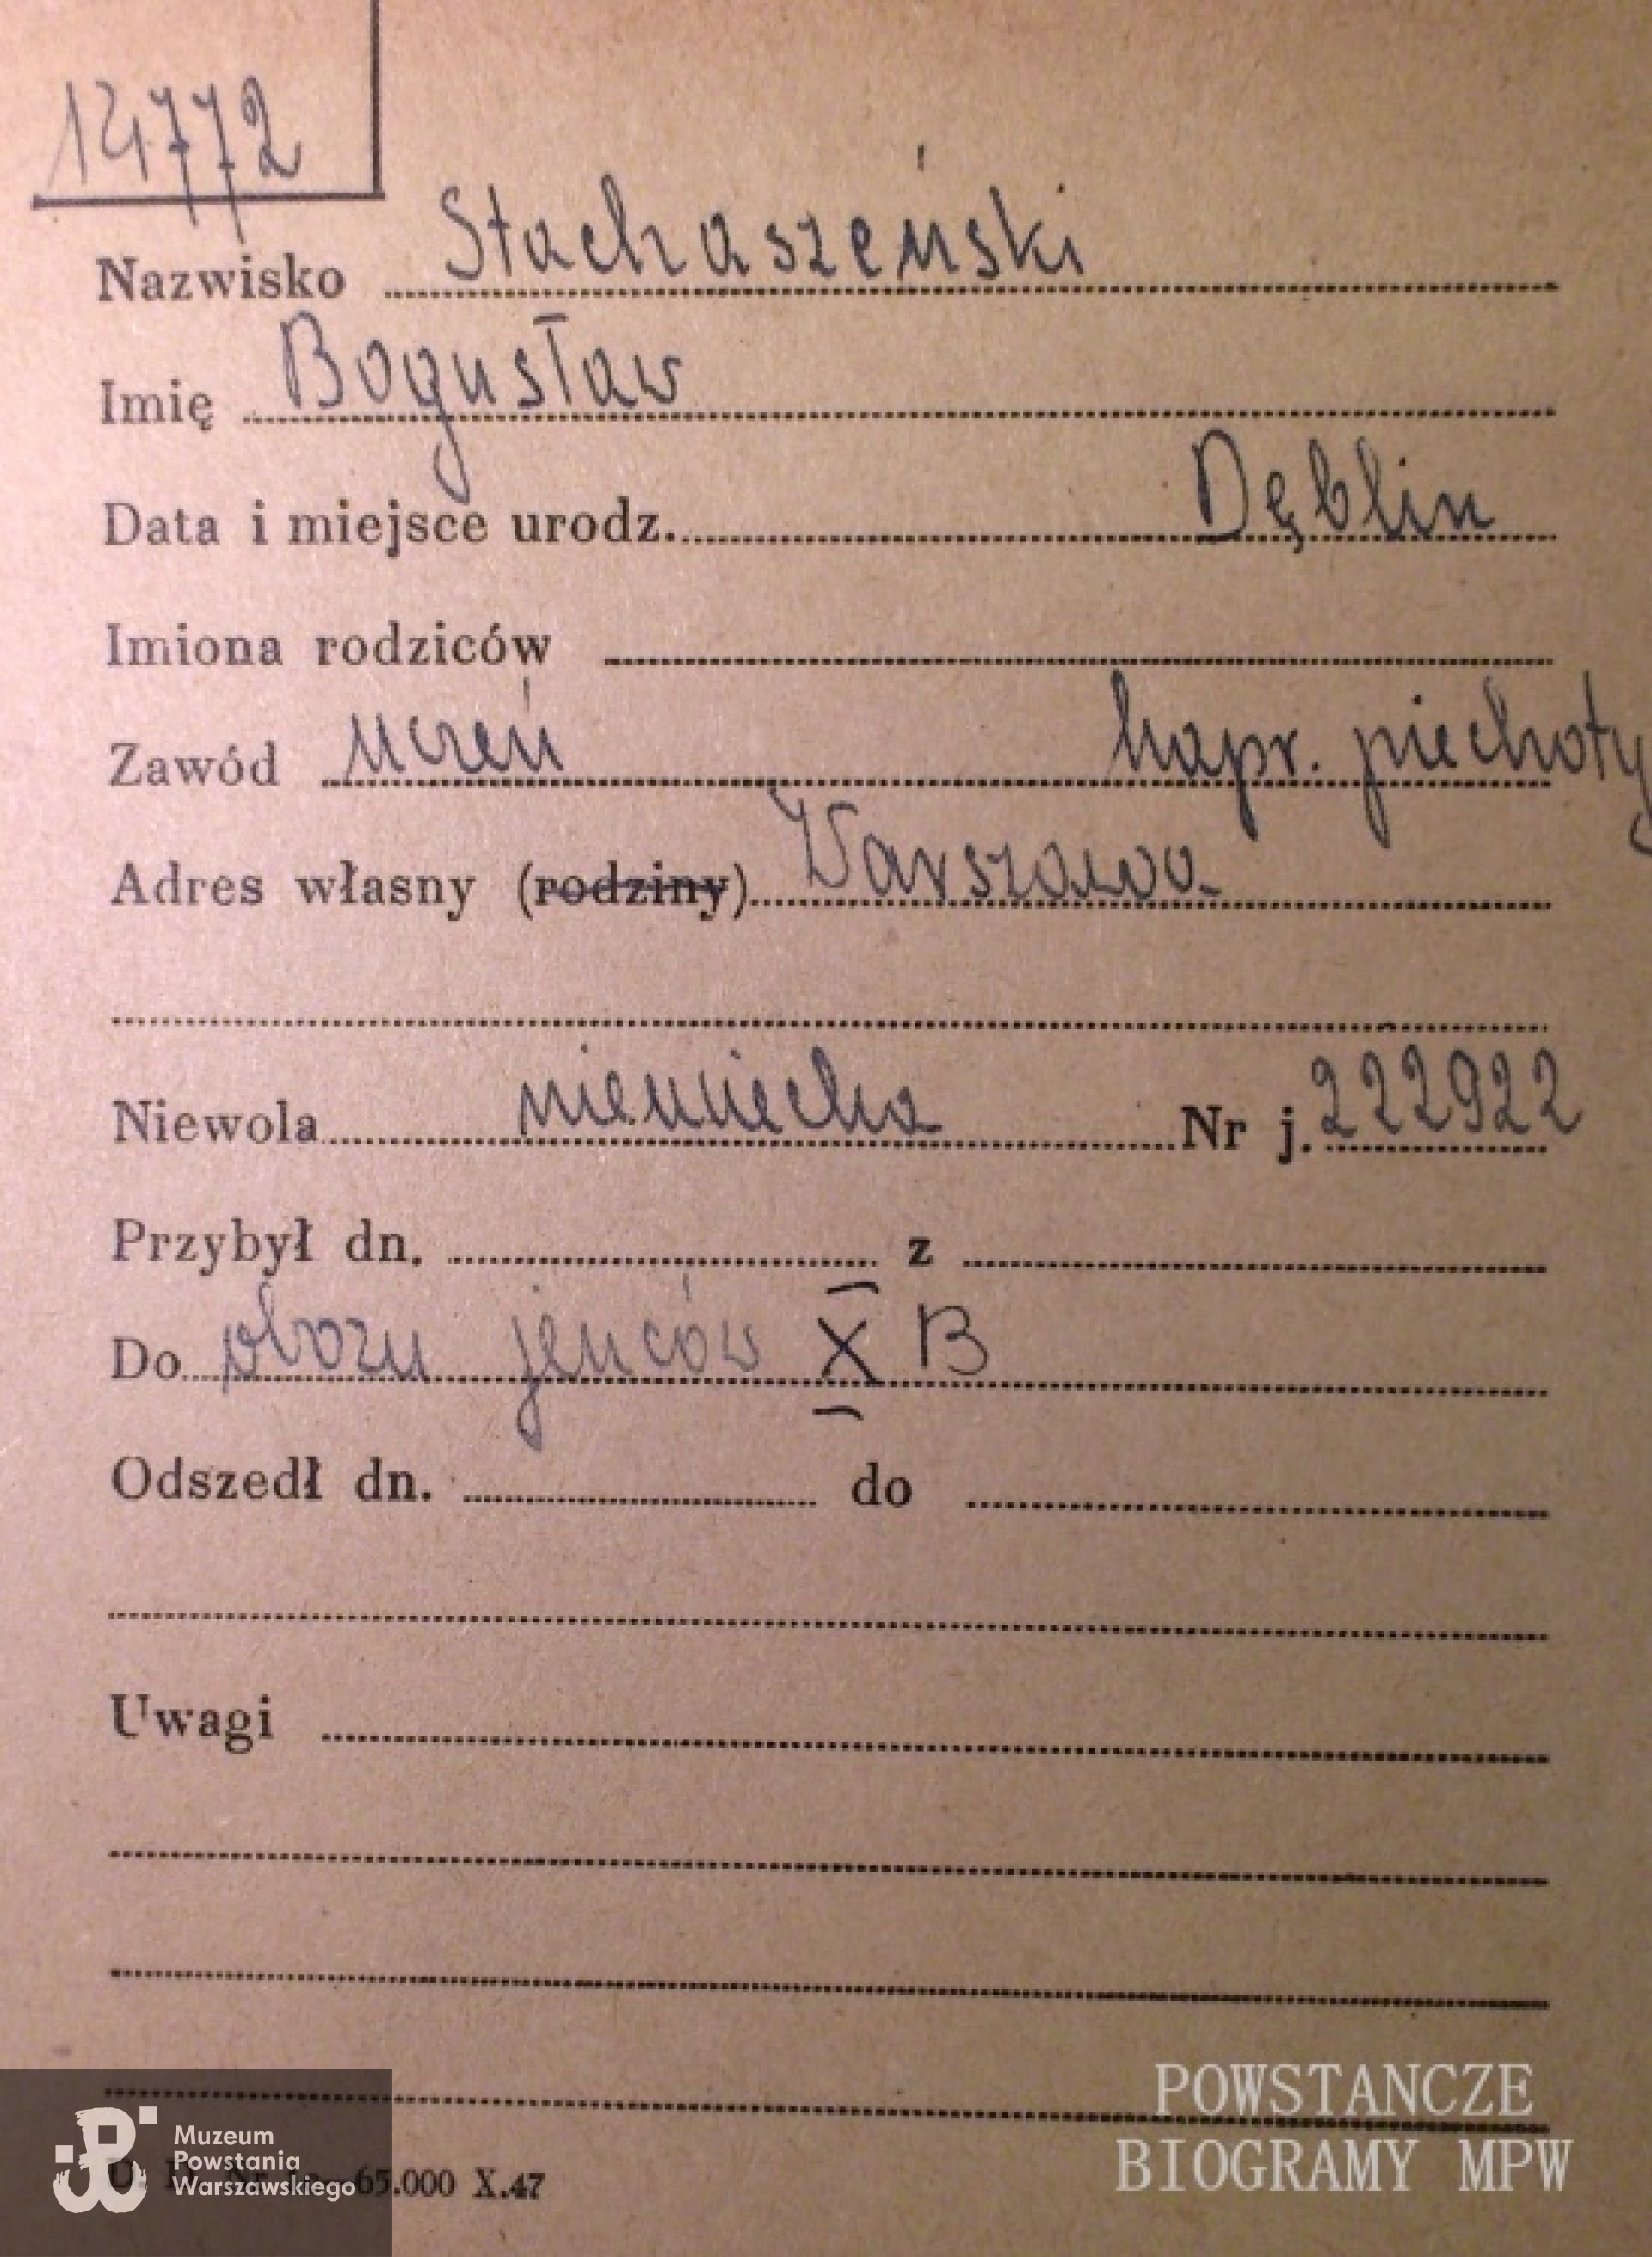 14772
Nazwisko Stachaszeński
Imię Bogusław
Data i miejsce urodz. Dęblin
Imiona rodziców
Zawód uczeń kapr. piechoty
Adres własny (rodziny) Warszawa
Niewola niemiecka Nr j. 222922
Przybył dn. z
Do obozu jeńców X B
Odszedł dn. do
Uwagi
65.000 X.47
Muzeum
Powstania
Warszawskiego
POWSTANCZE
BIOGRAMY MPW